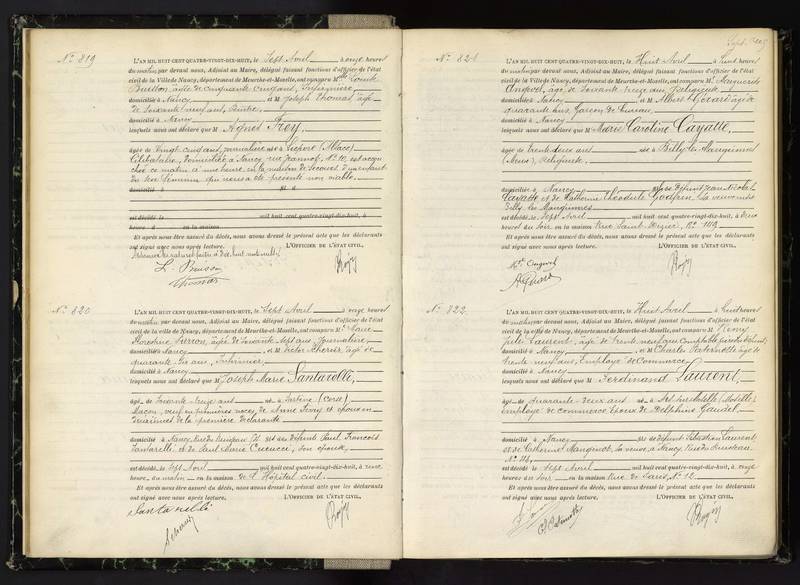 N° 819
L'AN MIL HUIT CENT QUATRE-VINGT-DIX-HUIT, le Sept Avril à onze heures
du matin par devant nous, Adjoint au Maire, délégué faisant fonctions d'officier de l'état
civil de la Ville de Nancy, département de Meurthe-et-Moselle, ont comparu M lle Louise
Buisson, âgée de Cinquante cinq ans, Infirmière,
domiciliée à Nancy et M Joseph Thomas, âgé
de Soixante neuf ans, Peintre,
domicilié à Nancy
lesquels nous ont déclaré que M Agnès Frey,
âgée de Vingt cinq ans, journalière née à (Alsace)
Célibataire, domiciliée à Nancy, rue Jeannot, N° 10, est accouchée
ce matin à une heure en la maison de Secours d'un enfant
du sexe féminin qui nous a été présenté non viable.
domicilié à fil d
est décédé le mil huit cent quatre-vingt-dix-huit, à
heures d en la maison
Et après nous être assuré du décès, nous avons dressé le présent acte que les déclarants
ont signé avec nous après lecture. L'OFFICIER DE L'ÉTAT CIVIL,
L. Buisson
Thomas
N° 820
L'AN MIL HUIT CENT QUATRE-VINGT-DIX-HUIT, le Sept Avril à onze heures
du matin par devant nous, Adjoint au Maire, délégué faisant fonctions d'officier de l'état
civil de la Ville de Nancy, département de Meurthe-et-Moselle, ont comparu M Marie
âgée de Soixante sept ans, Journalière,
domiciliée à Nancy et M Victor Scherer, âgé de
quarante six ans, Infirmier,
domicilié à Nancy
lesquels nous ont déclaré que M Joseph Marie Santarelli,
âgé de Soixante seize ans né à Sartène (Corse),
Maçon, veuf en premières noces de Anne Ferry et époux en
deuxièmes de la première déclarante
domicilié à Nancy, Rue du fils de défunts Paul François
Santarelli et de Paul Marie son épouse,
est décédé le Sept Avril mil huit cent quatre-vingt-dix-huit, à
heures du matin en la maison de l'Hôpital civil.
Et après nous être assuré du décès, nous avons dressé le présent acte que les déclarants
ont signé avec nous après lecture. L'OFFICIER DE L'ÉTAT CIVIL,
Santarelli
Scherer
N° 821
L'AN MIL HUIT CENT QUATRE-VINGT-DIX-HUIT, le Huit Avril à huit heures
du matin par devant nous, Adjoint au Maire, délégué faisant fonctions d'officier de l'état
civil de la Ville de Nancy, département de Meurthe-et-Moselle, ont comparu M Marguerite
âgée de Soixante seize ans Religieuse
domiciliée à Nancy et M Albert Gérard âgé de
quarante ans, Garçon de bureau,
domicilié à Nancy
lesquels nous ont déclaré que M Marie Caroline Cayatte,
âgée de trente deux ans née à Billy les Mangiennes
(Meuse), Religieuse,
domiciliée à Nancy fille de défunt Jean Nicolas
Cayatte et de Catherine Théodule Godfrin, sa veuve à
Billy les Mangiennes
est décédée le Sept Avril mil huit cent quatre-vingt-dix-huit, à deux
heures du Soir en la maison Rue Saint Dizier, N°
Et après nous être assuré du décès, nous avons dressé le présent acte que les déclarants
ont signé avec nous après lecture. L'OFFICIER DE L'ÉTAT CIVIL,
N° 822
L'AN MIL HUIT CENT QUATRE-VINGT-DIX-HUIT, le Huit Avril à huit heures
du matin par devant nous, Adjoint au Maire, délégué faisant fonctions d'officier de l'état
civil de la ville de Nancy, département de Meurthe-et-Moselle, ont comparu M Rémy
Jules Laurent, âgé de trente neuf ans Comptable
domicilié à Nancy et M Charles âgé de
trente neuf ans, Employé de Commerce
domicilié à Nancy
lesquels nous ont déclaré que M Ferdinand Laurent,
âgé de quarante deux ans né à Ars sur Moselle (Moselle)
Employé de commerce Époux de Delphine Gaudel,
domicilié à Nancy fils de défunt Sébastien Laurent
et de Catherine Mangenot, sa veuve, à Nancy, Rue du
N° 114,
est décédé le Sept Avril mil huit cent quatre-vingt-dix-huit, à onze
heures du Soir en la maison Rue de N° 12
Et après nous être assuré du décès, nous avons dressé le présent acte que les déclarants
ont signé avec nous après lecture. L'OFFICIER DE L'ÉTAT CIVIL,